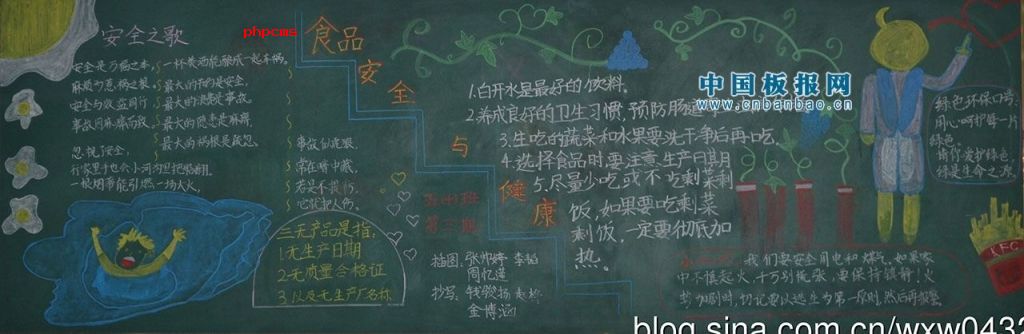 安全之歌
phpcms
安全是万福之本,
一杯美酒能酿成一起车祸。
麻痹乃万祸之根。
最大的幸福是安全,
安全与效益同行,
事故因麻痹而致。
最大的隐患是麻痹,
最大的祸根是疏忽。
忽视安全,
一根烟蒂能引燃一场大火。
事故似饿狼,
常在暗中藏,
若是不提防,
它就把人伤。
三无产品是指:
1.无生产日期
2.无质量合格证
3.以及无生产厂名称
食品安全与健康
第三期
插图:张
周忆莲
抄写:钱
金博涵
1.白开水是最好的饮料.
2.养成良好的卫生习惯,预防肠道
3.生吃的蔬菜和水果要洗干净后再吃.
4.选择食品时要注意生产日期
5.尽量少吃或不吃剩菜剩
饭,如果要吃剩菜
剩饭,一定要彻底加
热。
中国板报网
www.cnbanbao.cn
绿色环保口号:
用心呵护每一片
绿色。
绿是生命之源。
KFC
我们要安全用电和煤气,如果家
中不慎起火,千万别慌张,要保持镇静!火
势切记要以逃生为第一原则,然后再报警.
blog.sina.com.cn/wxw0432